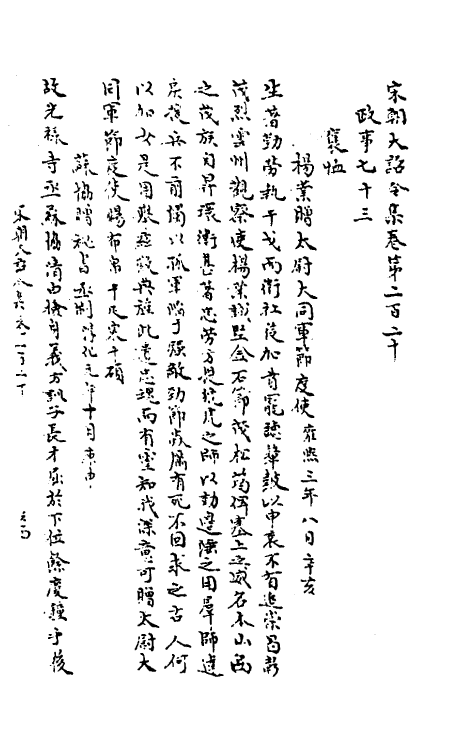 宋朝大詔令集卷第二百二十
政事七十三
褒恤
楊業贈太尉大同軍節度使 雍熙三年八月辛亥
坐籌勤勞執干戈而衛社稷加首寵聽鼙鼓以申哀不有追崇曷彰
茂烈雲州觀察使楊業誠堅金石節茂松筠俾塞上之威名本山西
之茂族自昇環衛甚著忠勞方思捴虎之師以効邊陲之用羣帥違
戾援兵不前獨以孤軍陷于强敵勁節歲厲有死不回求之古人何
以加此是用懸
典旌此遺忠魂而有靈知我深意可贈太尉大
同軍節度使賜布帛千疋粟千碩
蘇協贈祕書丞制 淳化元年十月
故光祿寺丞蘇協清白
義方訓子長才屈於下位餘慶鍾于後
宋朝大詔令集卷二百二十